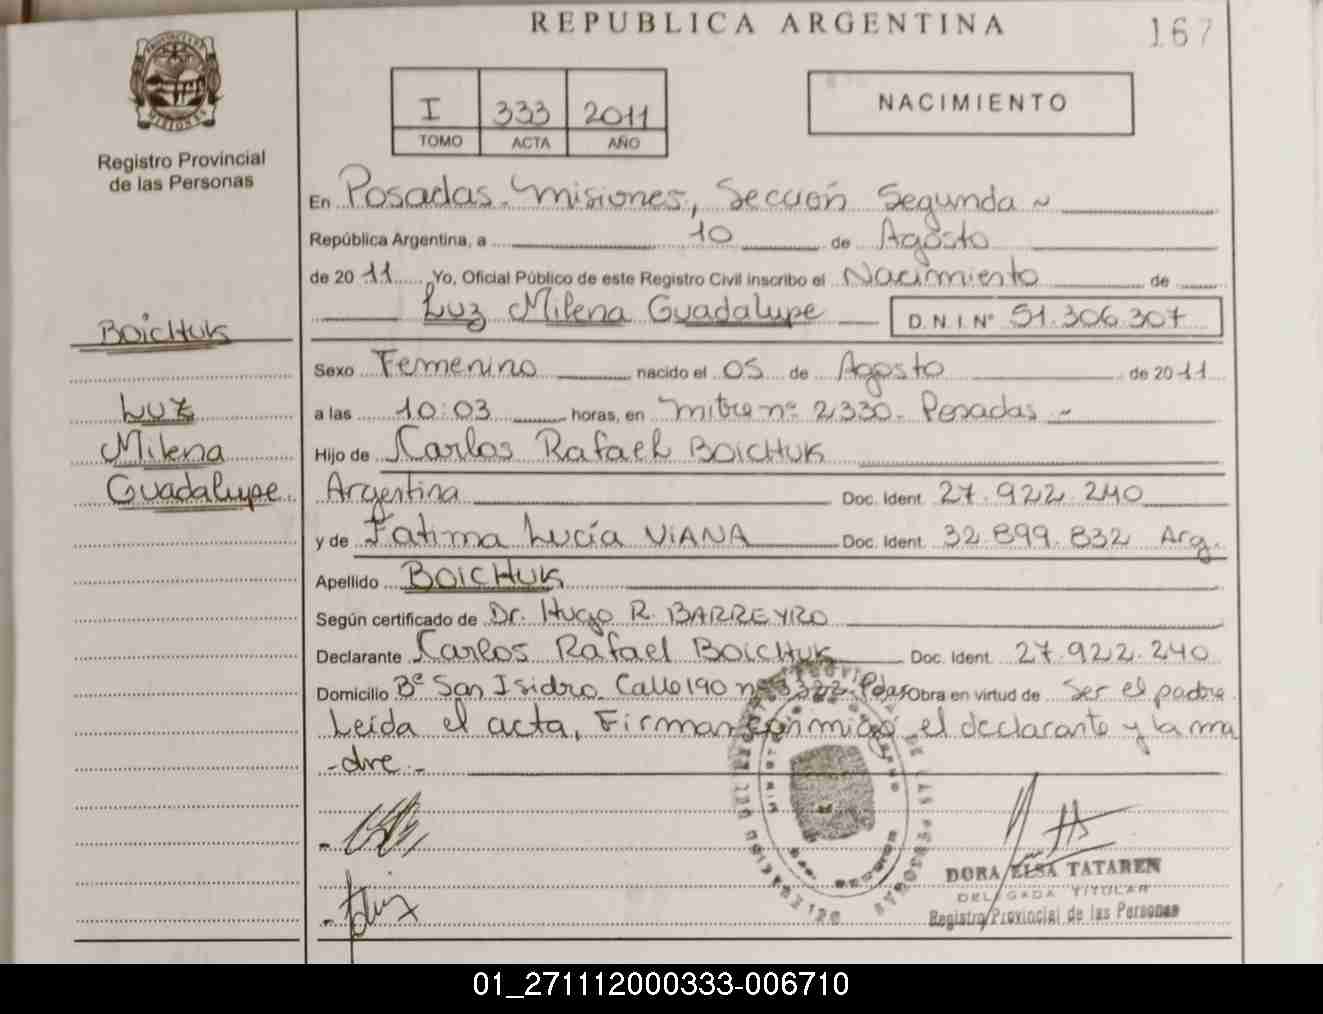 REPUBLICA ARGENTINA
167
Registro Provincial
de las Personas
I 333 2011
TOMO ACTA AÑO
NACIMIENTO
En Posadas. Misiones, Sección Segunda ~
República Argentina, a 10 de Agosto
de 2011 Yo, Oficial Público de este Registro Civil inscribo el Nacimiento de
Luz Milena Guadalupe D.N.I. Nº 51.306.307
BOICHUK
Luz
Milena
Guadalupe.
Sexo Femenino nacido el 05 de Agosto de 2011
a las 10:03 horas, en Mitre nº 2330- Posadas ~
Hijo de Carlos Rafael BOICHUK
Argentina Doc. Ident. 27.922.240
y de Fatima Lucía VIANA Doc. Ident. 32.899.832 Arg.
Apellido BOICHUK
Según certificado de Dr. Hugo R. BARREYRO
Declarante Carlos Rafael BOICHUK Doc. Ident. 27.922.240
Domicilio Bº San Isidro. Calle 190 Obra en virtud de Ser el padre
Leida el acta, Firman conmigo el declarante y la ma
-dre.-
DORA ELSA TATAREN
DELEGADA TITULAR
Registro Provincial de las Personas
01_271112000333-006710